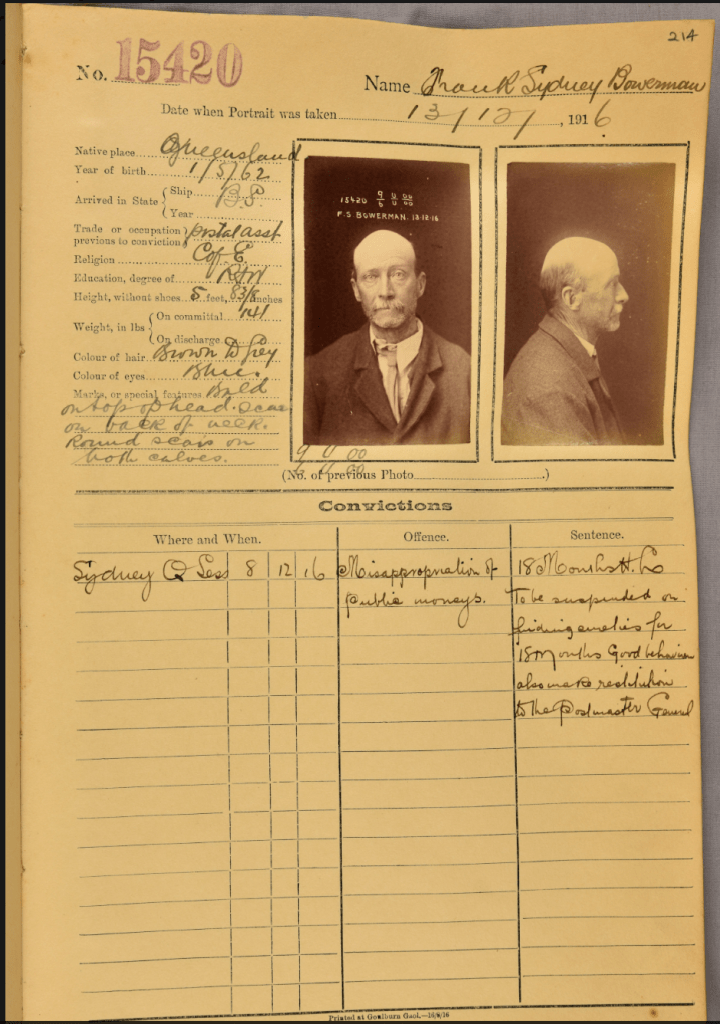 214
No. 15420
Name Frank Sydney Bowerman
Date when Portrait was taken 13/12/, 1916
Native place Queensland
Year of birth 1/5/62
Arrived in State { Ship B.S
Year
Trade or occupation previous to conviction } postal asst
Religion C of E
Education, degree of R&W
Height, without shoes 5 feet, 8 3/8 inches
Weight, in lbs { On committal 141
On discharge
Colour of hair Brown to Grey
Colour of eyes Blue.
Marks, or special features Bald
on top of head. scar
on back of neck.
Round scars on
both calves.
15420 9 U 00
6 U 00
F.S BOWERMAN. 13-12-16
9 U 00
(No. of previous Photo .)
Convictions
Where and When. Offence. Sentence.
Sydney Q Sess 8 12 16 Misappropriation of 18 Months H. L
public moneys. To be suspended on
finding sureties for
18 Months Good behavior
also make restitution
to the Postmaster General
Printed at Goulburn Gaol.—16/8/16